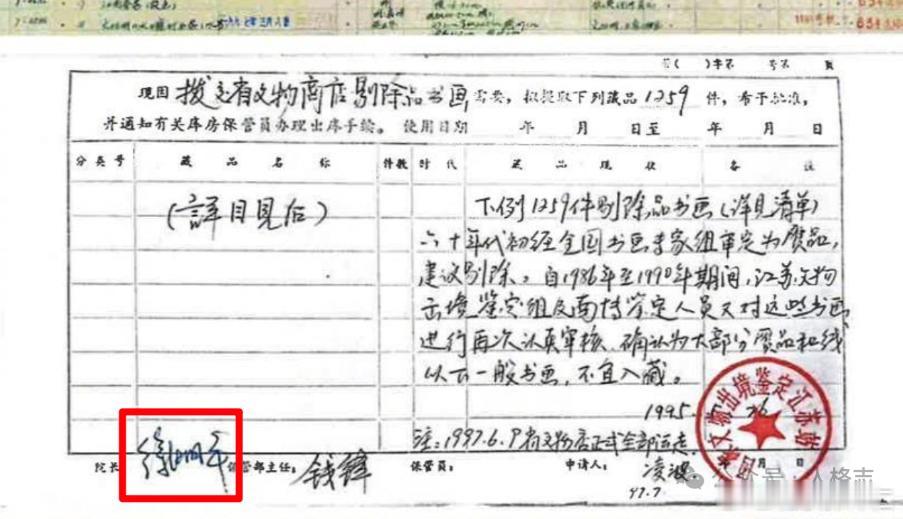 字第 号第 页
现因 拨交省文物商店剔除品书画 需要，拟提取下列藏品 1259 件，希予批准，
并通知有关库房保管员办理出库手续。使用日期 年 月 日至 年 月 日
分类号 藏品名称 件数 时代 藏品现状 备注
（详目見后）
下例1259件剔除品书画（详見清单）
六十年代初经全国书画专家组审定为赝品，
建议剔除。自1986年至1990年期间，江苏文物
出境鉴定组及南博鉴定人员又对这些书画
进行再次认真审核，确认为大部分赝品和线
以下一般书画，不宜入藏。
1995
注：1997.6.9省文物店正式全部运走
院长 徐湖平 保管部主任： 钱锋 保管员： 申请人： 凌波
97.7
文物出境鉴定江苏